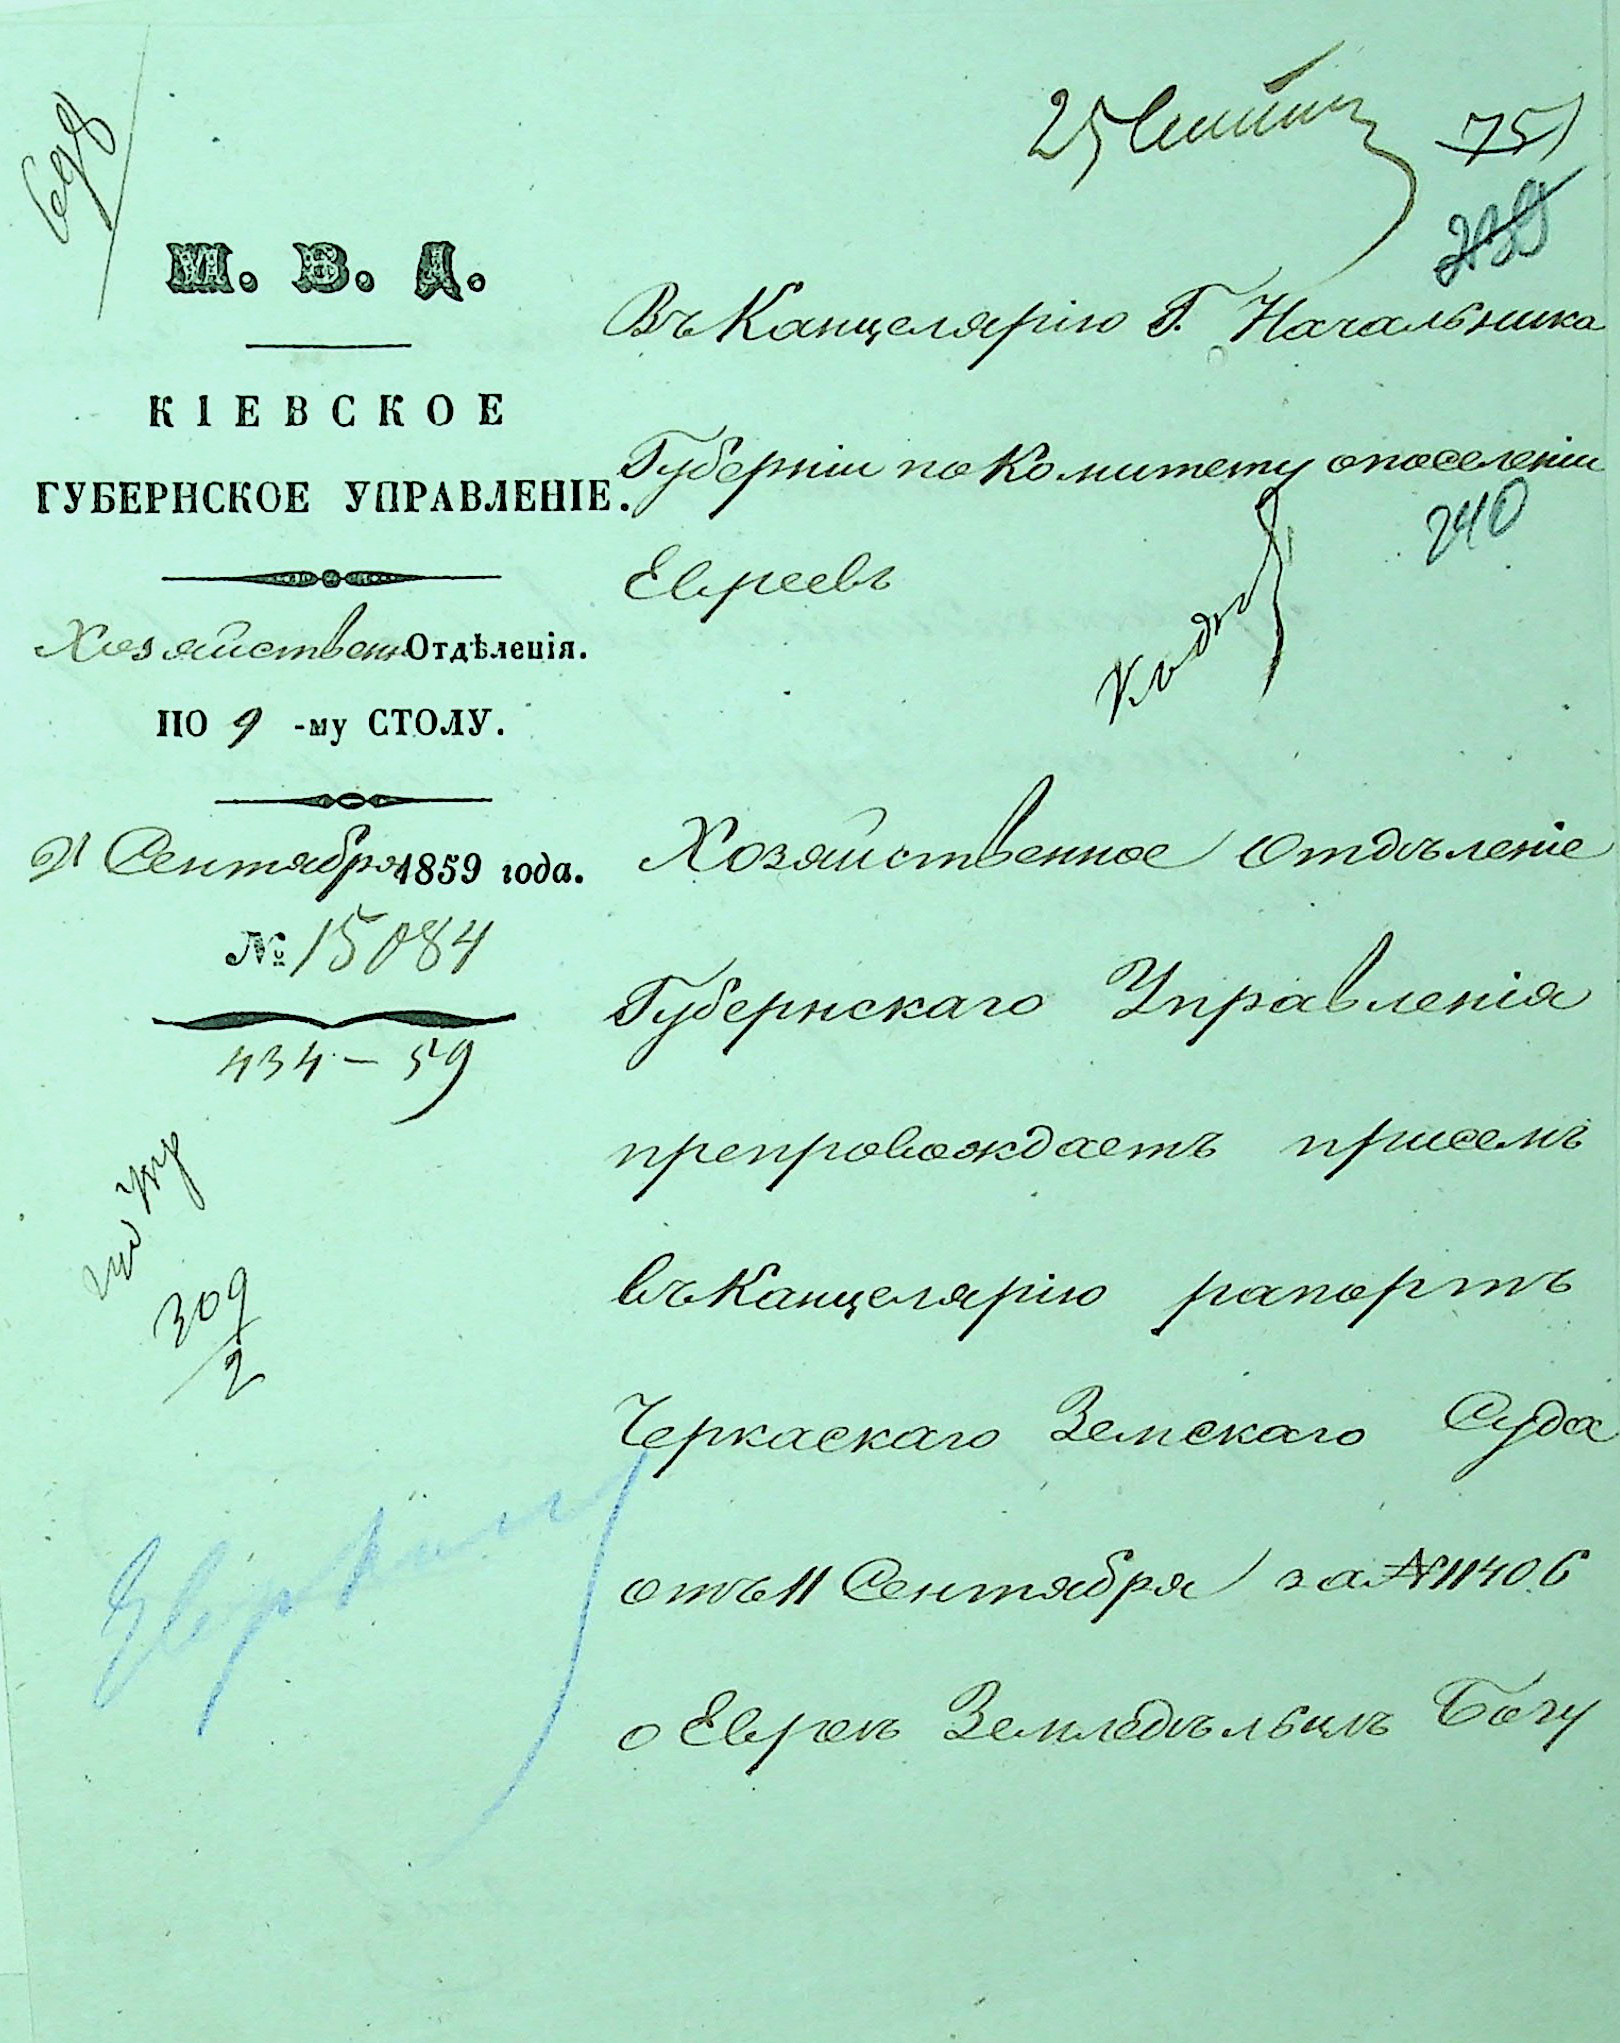 25 Сентяб
75
239
М. В. Д.
КІЕВСКОЕ
ГУБЕРНСКОЕ УПРАВЛЕНІЕ.
Хозяйствен Отдѣленія.
ПО 9 -му СТОЛУ.
21 Сентября 1859 года.
№ 15084
434 – 59
309
2
Въ Канцелярію Г. Начальника
Губерніи по Комитету о поселеніи
240
Евреевъ
Хозяйственное Отдѣленіе
Губернскаго Управленія
препровождаетъ присемъ
въ Канцелярію рапортъ
Черкаскаго Земскаго Суда
отъ 11 Сентября за № 11406
о Евреѣ Земледѣльцѣ Богу